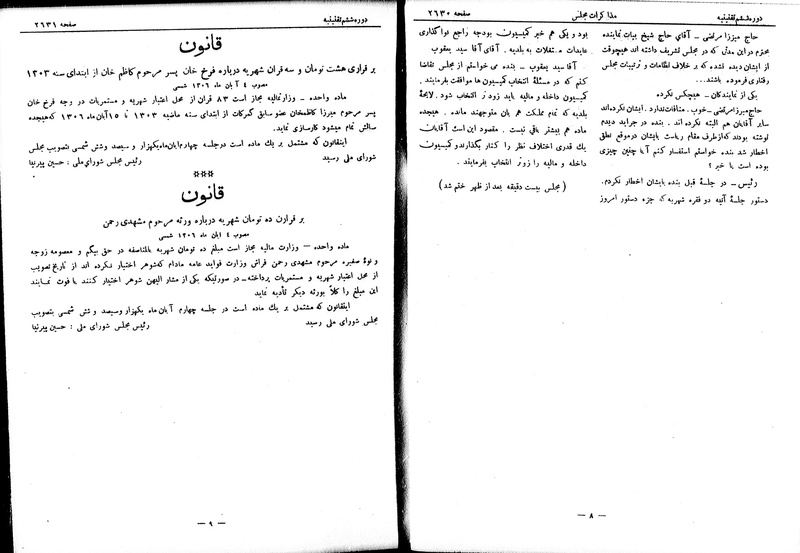 دوره ششم تقنینیه
مذاکرات مجلس
صفحه ۲۶۳۰
حاج میرزا مرتضی - آقای حاج شیخ بیات نماینده
محترم در این مدتی که در مجلس تشریف داشته اند هیچوقت
از ایشان دیده نشده که بر خلاف نظامات و ترتیبات مجلس
رفتاری فرموده باشند...
یکی از نمایندگان - هیچکس نکرده
حاج میرزا مرتضی - خوب. منافات ندارد. ایشان نکرده‌اند
سایر آقایان هم البته نکرده اند. بنده در جراید دیدم
نوشته بودند که از طرف مقام ریاست بایشان در موقع نطق
اخطار شد بنده خواستم استفسار کنم آیا چنین چیزی
بوده است یا خیر؟
رئیس - در جلسۀ قبل بنده بایشان اخطار نکردم.
دستور جلسۀ آتیه دو فقره شهریه که جزء دستور امروز
بود و یکی هم خبر کمیسیون بودجه راجع بواگذاری
عایدات مستغلات به بلدیه. آقای آقا سید یعقوب
آقا سید یعقوب - بنده می خواستم از مجلس تقاضا
کنم که در مسئلۀ انتخاب کمیسیون ها موافقت بفرمایند.
کمیسیون داخله و مالیه باید زودتر انتخاب شود. لایحۀ
بلدیه که تمام مملکت هم بان متوجهند مانده. هیجده
ماده هم بیشتر باقی نیست. مقصود این است آقایان
یک قدری اختلاف نظر را کنار بگذارند و کمیسیون
داخله و مالیه را زودتر انتخاب بفرمایند.
(مجلس بیست دقیقه بعد از ظهر ختم شد)
— ۸ —
دوره ششم تقنینیه
صفحه ۲۶۳۱
قانون
بر قراری هشت تومان و سه قران شهریه درباره فرخ خان پسر مرحوم کاظم خان از ابتدای سنه ۱۳۰۳
مصوب ۴ آبان ماه ۱۳۰۶ شمسی
ماده واحده - وزارت مالیه مجاز است ۸۳ قران از محل اعتبار شهریه و مستمریات در وجه فرخ خان
پسر مرحوم میرزا کاظمخان عضو سابق گمرکات از ابتدای سنه ماضیه ۱۳۰۳ تا ۱۵ آبان ماه ۱۳۰۶ که هیجده
سالش تمام میشود کارسازی نماید.
اینقانون که مشتمل بر یک ماده است در جلسه چهارم آبان ماه یکهزار و سیصد و شش شمسی بتصویب مجلس
شورای ملی رسید
رئیس مجلس شورای ملی : حسین پیرنیا
***
قانون
بر قراری ده تومان شهریه درباره ورثه مرحوم مشهدی رحمن
مصوب ۴ آبان ماه ۱۳۰۶ شمسی
ماده واحده - وزارت مالیه مجاز است مبلغ ده تومان شهریه بالمناصفه در حق بیگم و معصومه زوجه
و نوۀ صغیره مرحوم مشهدی رحمن فراش وزارت فواید عامه مادام که شوهر اختیار نکرده اند از تاریخ تصویب
از محل اعتبار شهریه و مستمریات پرداخته - در صورتیکه یکی از مشار الیهن شوهر اختیار کنند یا فوت نمایند
این مبلغ را کلاً بورثه دیگر تأدیه نماید
اینقانون که مشتمل بر یک ماده است در جلسه چهارم آبان ماه یکهزار و سیصد و شش شمسی بتصویب
مجلس شورای ملی رسید
رئیس مجلس شورای ملی : حسین پیرنیا
— ۹ —